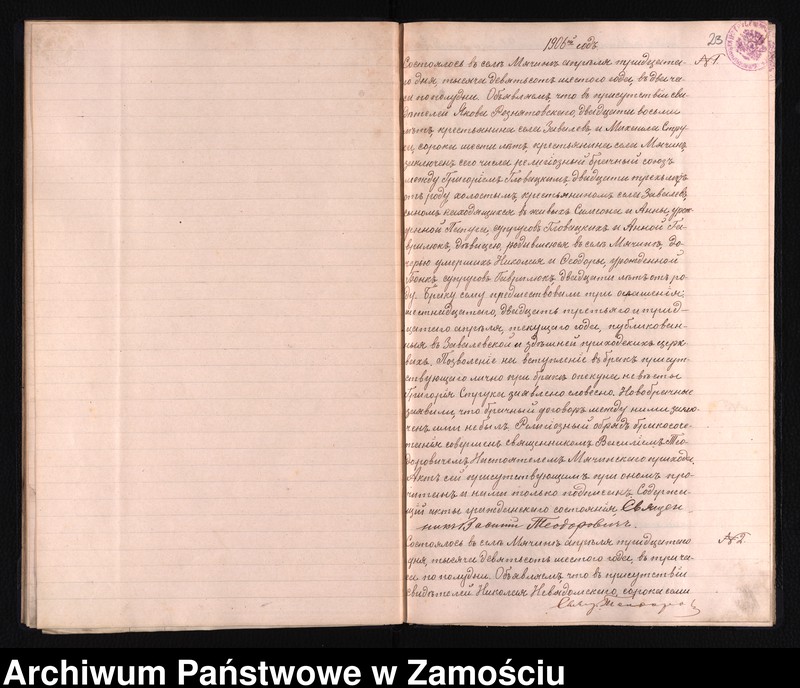 1906й годъ
23
№ 1.
Состоялось въ селѣ Мячинѣ апрѣля тридцата-
го дня, тысяча девятьсотъ шестого года, въ два ча-
са по полудни. Объявляемъ, что въ присутствіи сви-
дѣтелей Якова Рознятовскаго, двадцати восьми
лѣтъ, крестьянина села Завалева, и Михаила Стру-
ка, сорока шести лѣтъ, крестьянина села Мячинъ
заключенъ сего числа религіозный брачный союзъ
между Григоріемъ Гловацкимъ, двадцати трехъ лѣтъ
отъ роду холостымъ, крестьяниномъ села Завалева,
сыномъ находящихся въ живыхъ Симеона и Анны, урож-
денной супруговъ Гловацкихъ и Анной Га-
врилюкъ, дѣвицею, родившеюся въ селѣ Мячинѣ, до-
черью умершихъ Николая и Ѳеодоры, урожденной
супруговъ Гаврилюкъ, двадцати лѣтъ отъ ро-
ду. Браку сему предшествовали три оглашенія:
шестнадцатаго, двадцать третьяго и трид-
цатаго апрѣля, текущаго года, публикован-
ныя въ Завалевской и здѣшней приходскихъ церк-
вахъ. Позволеніе на вступленіе въ бракъ присут-
ствующаго лично при бракѣ опекуна невѣсты
Григорія Струка заявлено словесно. Новобрачные
заявили, что брачный договоръ между ними заклю-
ченъ ими небылъ. Религіозный обрядъ бракосоче-
танія совершенъ священникомъ Василіемъ Тео-
доровичемъ Настоятелемъ Мячинскаго прихода.
Актъ сей присутствующимъ при ономъ про-
читанъ и нами только подписанъ. Содержа-
щій акты гражданскаго состоянія, Священ-
никъ Василій Теодоровичъ.
№ 2.
Состоялось въ селѣ Мячинѣ апрѣля тридцатаго
дня, тысяча девятьсотъ шестого года, въ три ча-
са по полудни. Объявляемъ, что въ присутствіи
свидѣтелей Николая Невядомскаго, сорока семи
Archiwum Państwowe w Zamościu